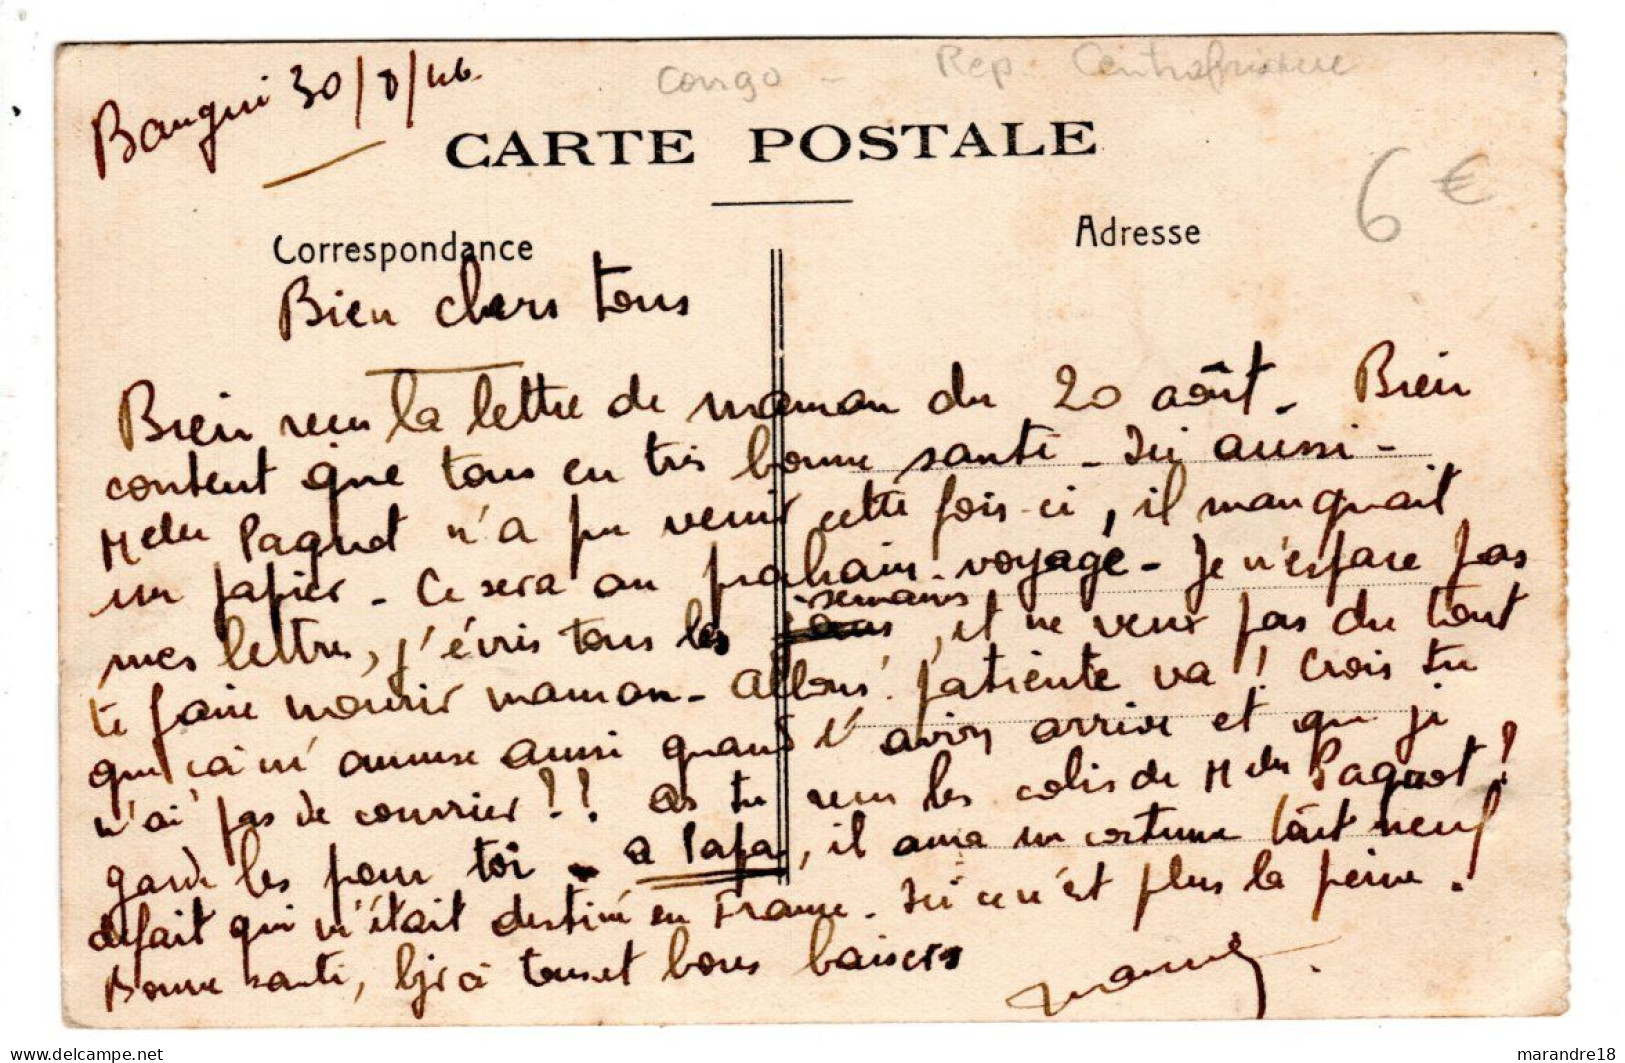 Congo - Rep. Centrafricaine
Bangui 30/8/46.
CARTE POSTALE
6 €
Correspondance
Adresse
Bien chers tous
Bien reçu la lettre de maman du 20 août. Bien
content que tous en très bonne santé - Ici aussi -
Paquot n'a pu venir cette fois-ci, il manquait
un papier - Ce sera au prochain voyage - Je n'espace pas
semaines
mes lettres, j'écris tous les jours, et ne veux pas du tout
te faire mourir maman - Allons! patiente va! Crois tu
que çà m'amuse aussi quand l'avion arrive et que je
n'ai pas de courrier!! As tu reçu les colis de Paquot!
garde les pour toi - a Papa, il aura un costume tout neuf
défait qui m'était destiné en France. Ici ce n'est plus la peine.
Bonne santé, bjr à tous et bons baisers
marandre18